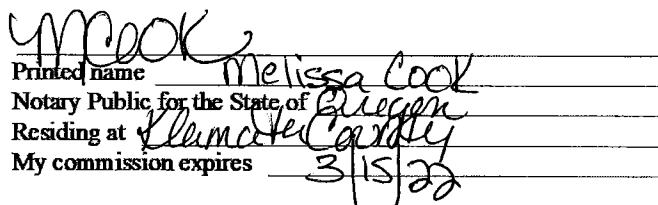 MCook
Printed name Melissa Cook
Notary Public for the State of Oregon
Residing at Klamath County
My commission expires 3/15/22